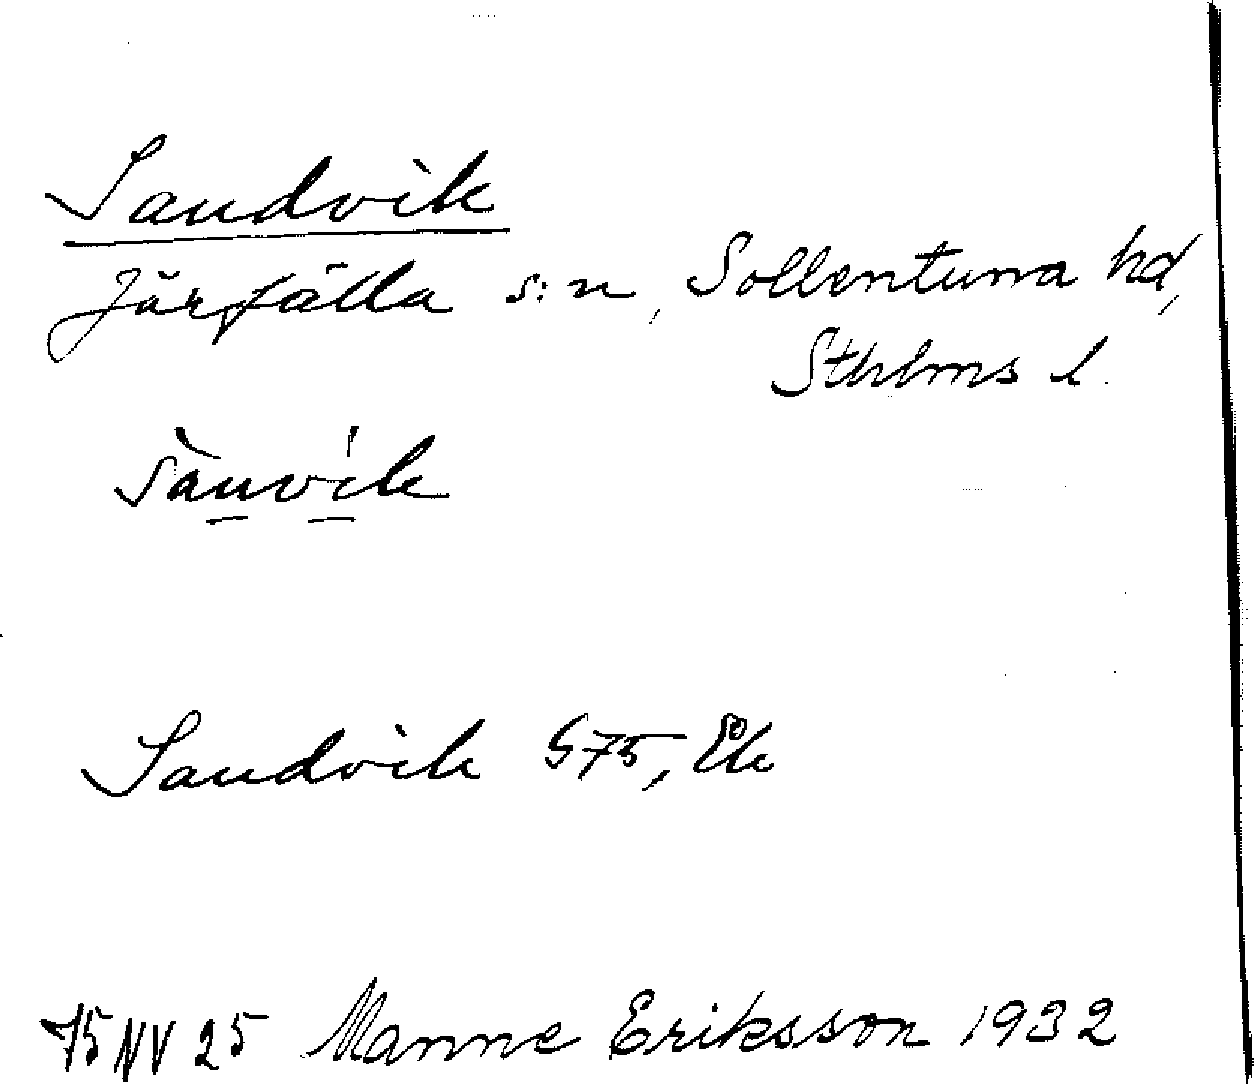 Sandvik
Järfälla s:n, Sollentuna hd,
Sthlms l.
sànvi'k
Sandvik G75, Ek
75 NV 25 Manne Eriksson 1932